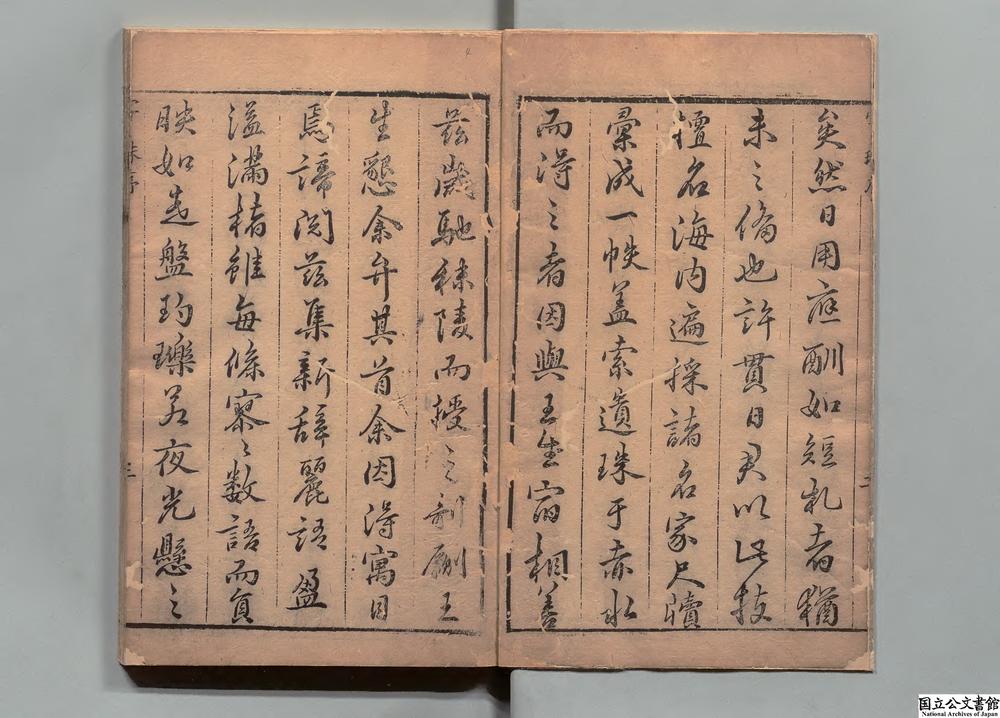 矣然日用應酬如短札者猶
未之備也許貫日君以此技
擅名海内遍採諸名家尺牘
彙成一帙盖索遺珠于赤水
而得之者因與王生宿相善
茲歲馳秣陵而授之剞劂王
生懇余弁其首余因淂寓目
焉諦閲茲集新辞麗語盈
溢滿楮雖每條寥寥數語而負
映如走盤玓瓅若夜光懸之
国立公文書館
National Archives of Japan